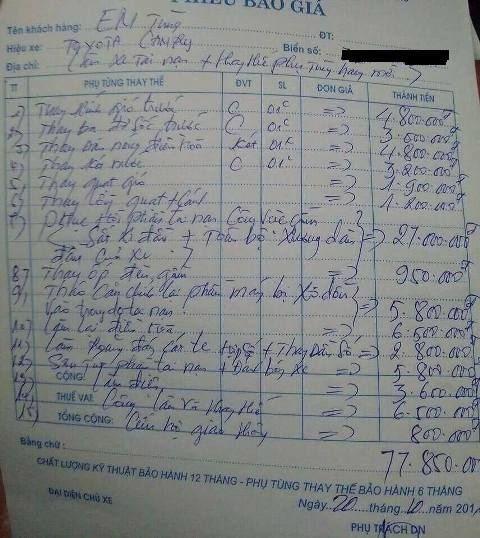 PHIẾU BÁO GIÁ
Tên khách hàng: EM Tùng ĐT:
Hiệu xe: TOYOTA CAMRY Biển số:
Địa chỉ: Xe Tai nan + Thay thế phụ Tùng
TT PHỤ TÙNG THAY THẾ ĐVT SL ĐƠN GIÁ THÀNH TIỀN
1) Thay kính gió trước C 01c => 4.800.000đ
2) Thay ba đờ sốc trước C 01c => 3.600.000đ
3) Thay két 01c => 4.800.000đ
4) Thay két nước C 01c => 3.200.000đ
5) Thay quạt gió => 1.900.000đ
6) Thay quạt => 1.200.000đ
7) Phục hồi phần tai nan Công
Sắt xi đầu + Toàn bộ xương đầu => 27.000.000đ
đầu của xe
8) Thay ốp đèn gầm => 950.000đ
9) Tháo Cân chỉnh lại phần máy bị xô dồn
vào trong do tai nan => 5.800.000đ
10) Làm lại điều hòa => 6.500.000
11) Làm + Thay dầu => 2.800.000
12) Sơn phần tai nan + xe => 5.800.000
CỘNG:
13) Làm điện => 3.600.000
THUẾ VAT
14) Công làm và thay thế => 6.500.000
TỔNG CỘNG:
15) Cứu hộ giao thông => 800.000đ
Bằng chữ: 77.850.000
CHẤT LƯỢNG KỸ THUẬT BẢO HÀNH 12 THÁNG - PHỤ TÙNG THAY THẾ BẢO HÀNH 6 THÁNG
Ngày 20 tháng 10 năm 201
ĐẠI DIỆN CHỦ XE PHỤ TRÁCH DN